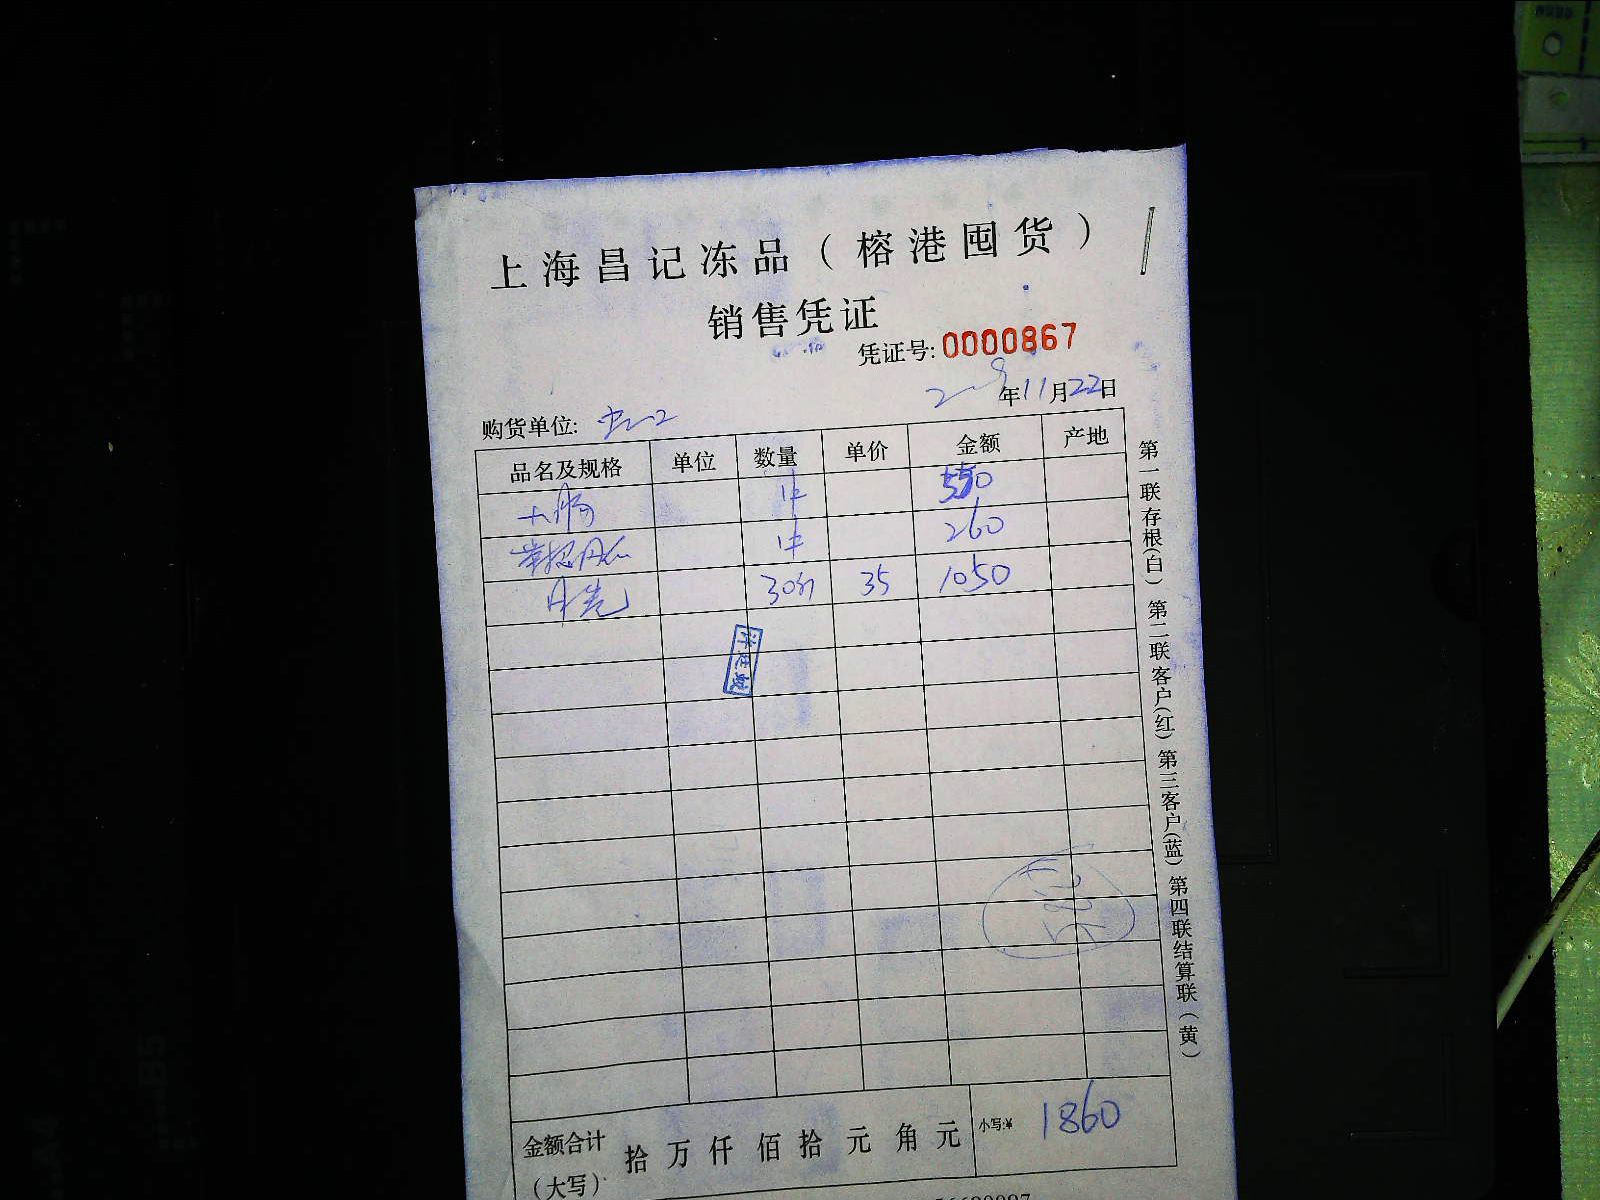 上海昌记冻品（榕港囤货）
销售凭证
凭证号: 0000867
年11月22日
购货单位:
品名及规格 单位 数量 单价 金额 产地
大肠 1件 550
1件 260
30斤 35 1050
金额合计（大写） 拾 万 仟 佰 拾 元 角 元 小写:¥ 1860
第一联存根(白) 第二联客户(红) 第三客户(蓝) 第四联结算联(黄)